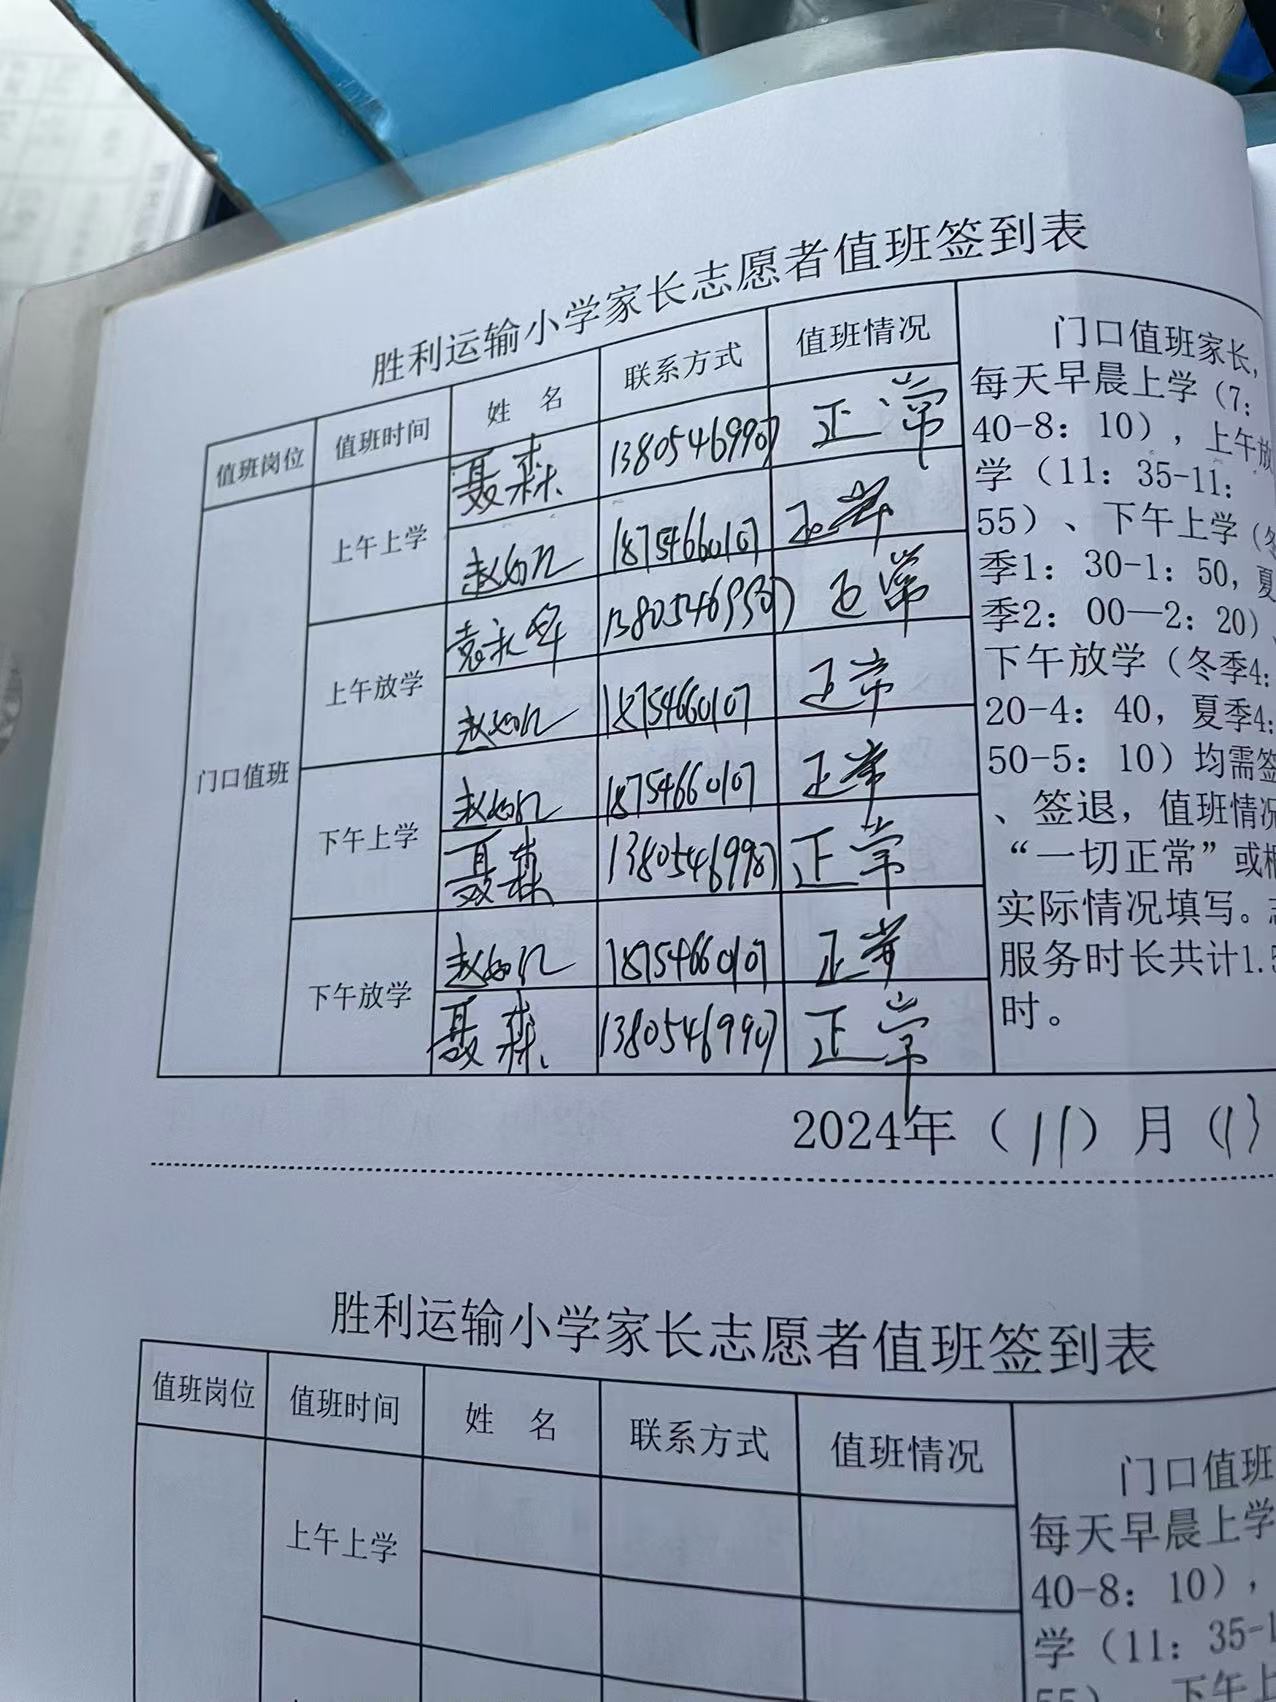 胜利运输小学家长志愿者值班签到表
值班岗位 值班时间 姓 名 联系方式 值班情况
门口值班
上午上学 聂森 正常
赵 18754660107 正常
上午放学 袁 正常
赵 18754660107 正常
下午上学 赵 18754660107 正常
聂森 正常
下午放学 赵 18754660107 正常
聂森 正常
门口值班家长,
每天早晨上学（7:
40-8: 10），上午放
学（11: 35-11:
55）、下午上学（冬
季1: 30-1: 50，夏
季2: 00—2: 20）、
下午放学（冬季4:
20-4: 40，夏季4:
50-5: 10）均需签
、签退，值班情况
“一切正常”或
实际情况填写。
服务时长共计1.5
时。
2024年（11）月（13
胜利运输小学家长志愿者值班签到表
值班岗位 值班时间 姓 名 联系方式 值班情况
上午上学
门口值班
每天早晨上学
40-8: 10），
学（11: 35-1
55）、下午上